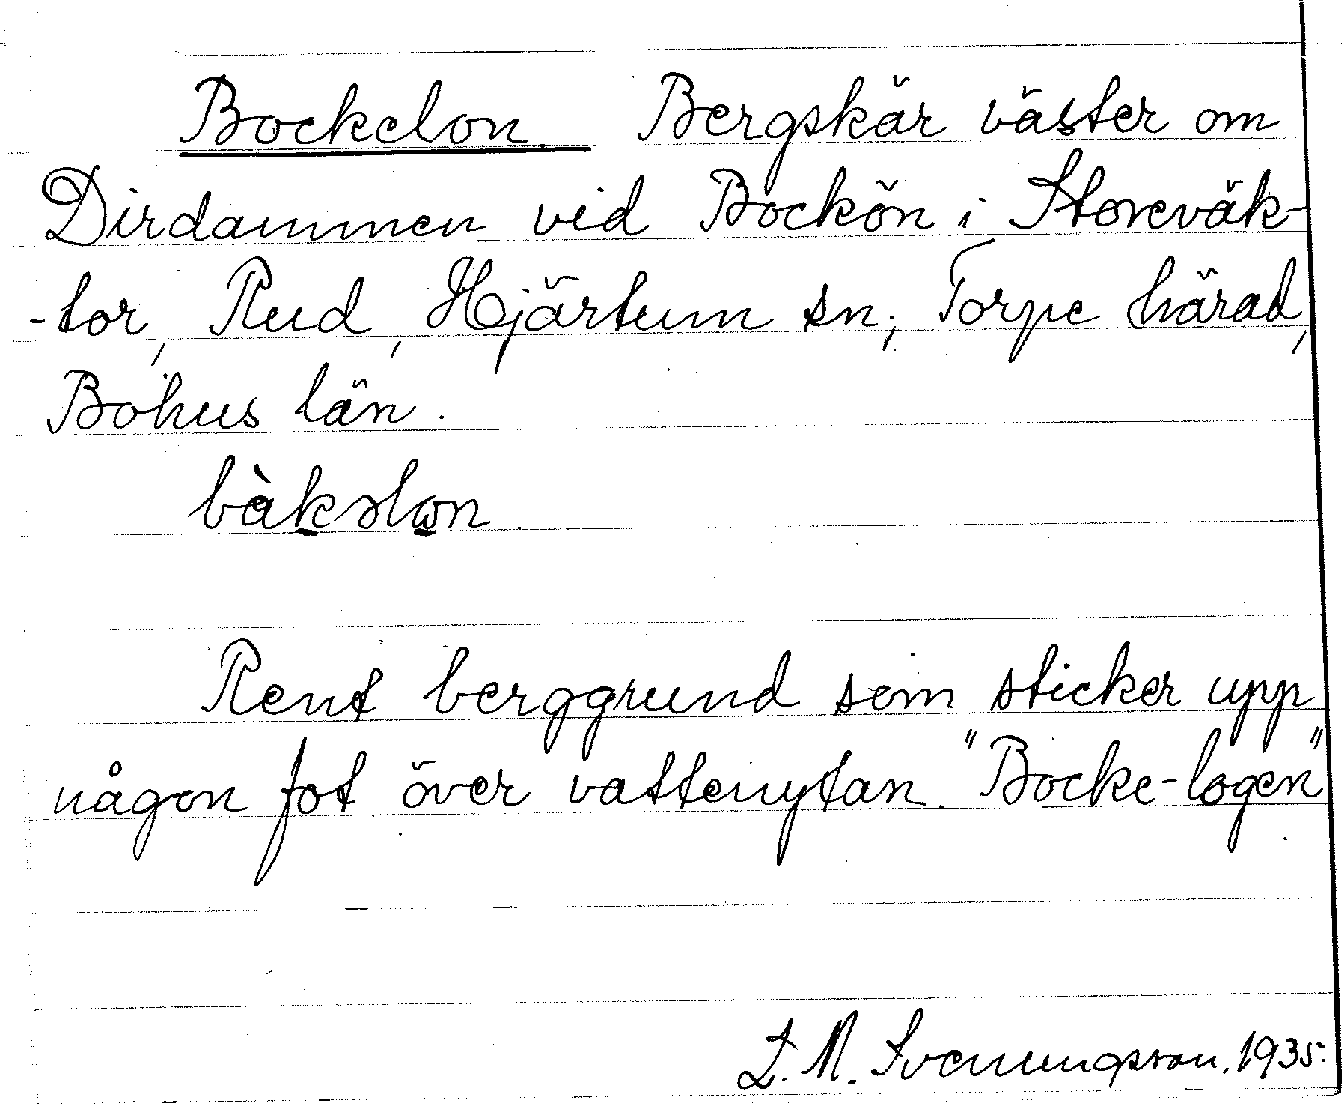 Bockelon Bergskär väster om
Dirdammen vid Bockön i Storeväk-
-tor, Rud, Hjärtum sn; Torpe härad,
Bohus län.
bàkəlωn
Rent berggrund som sticker upp
någon fot över vattenytan. "Bocke-logen"
L. M. Svenungsson. 1935.